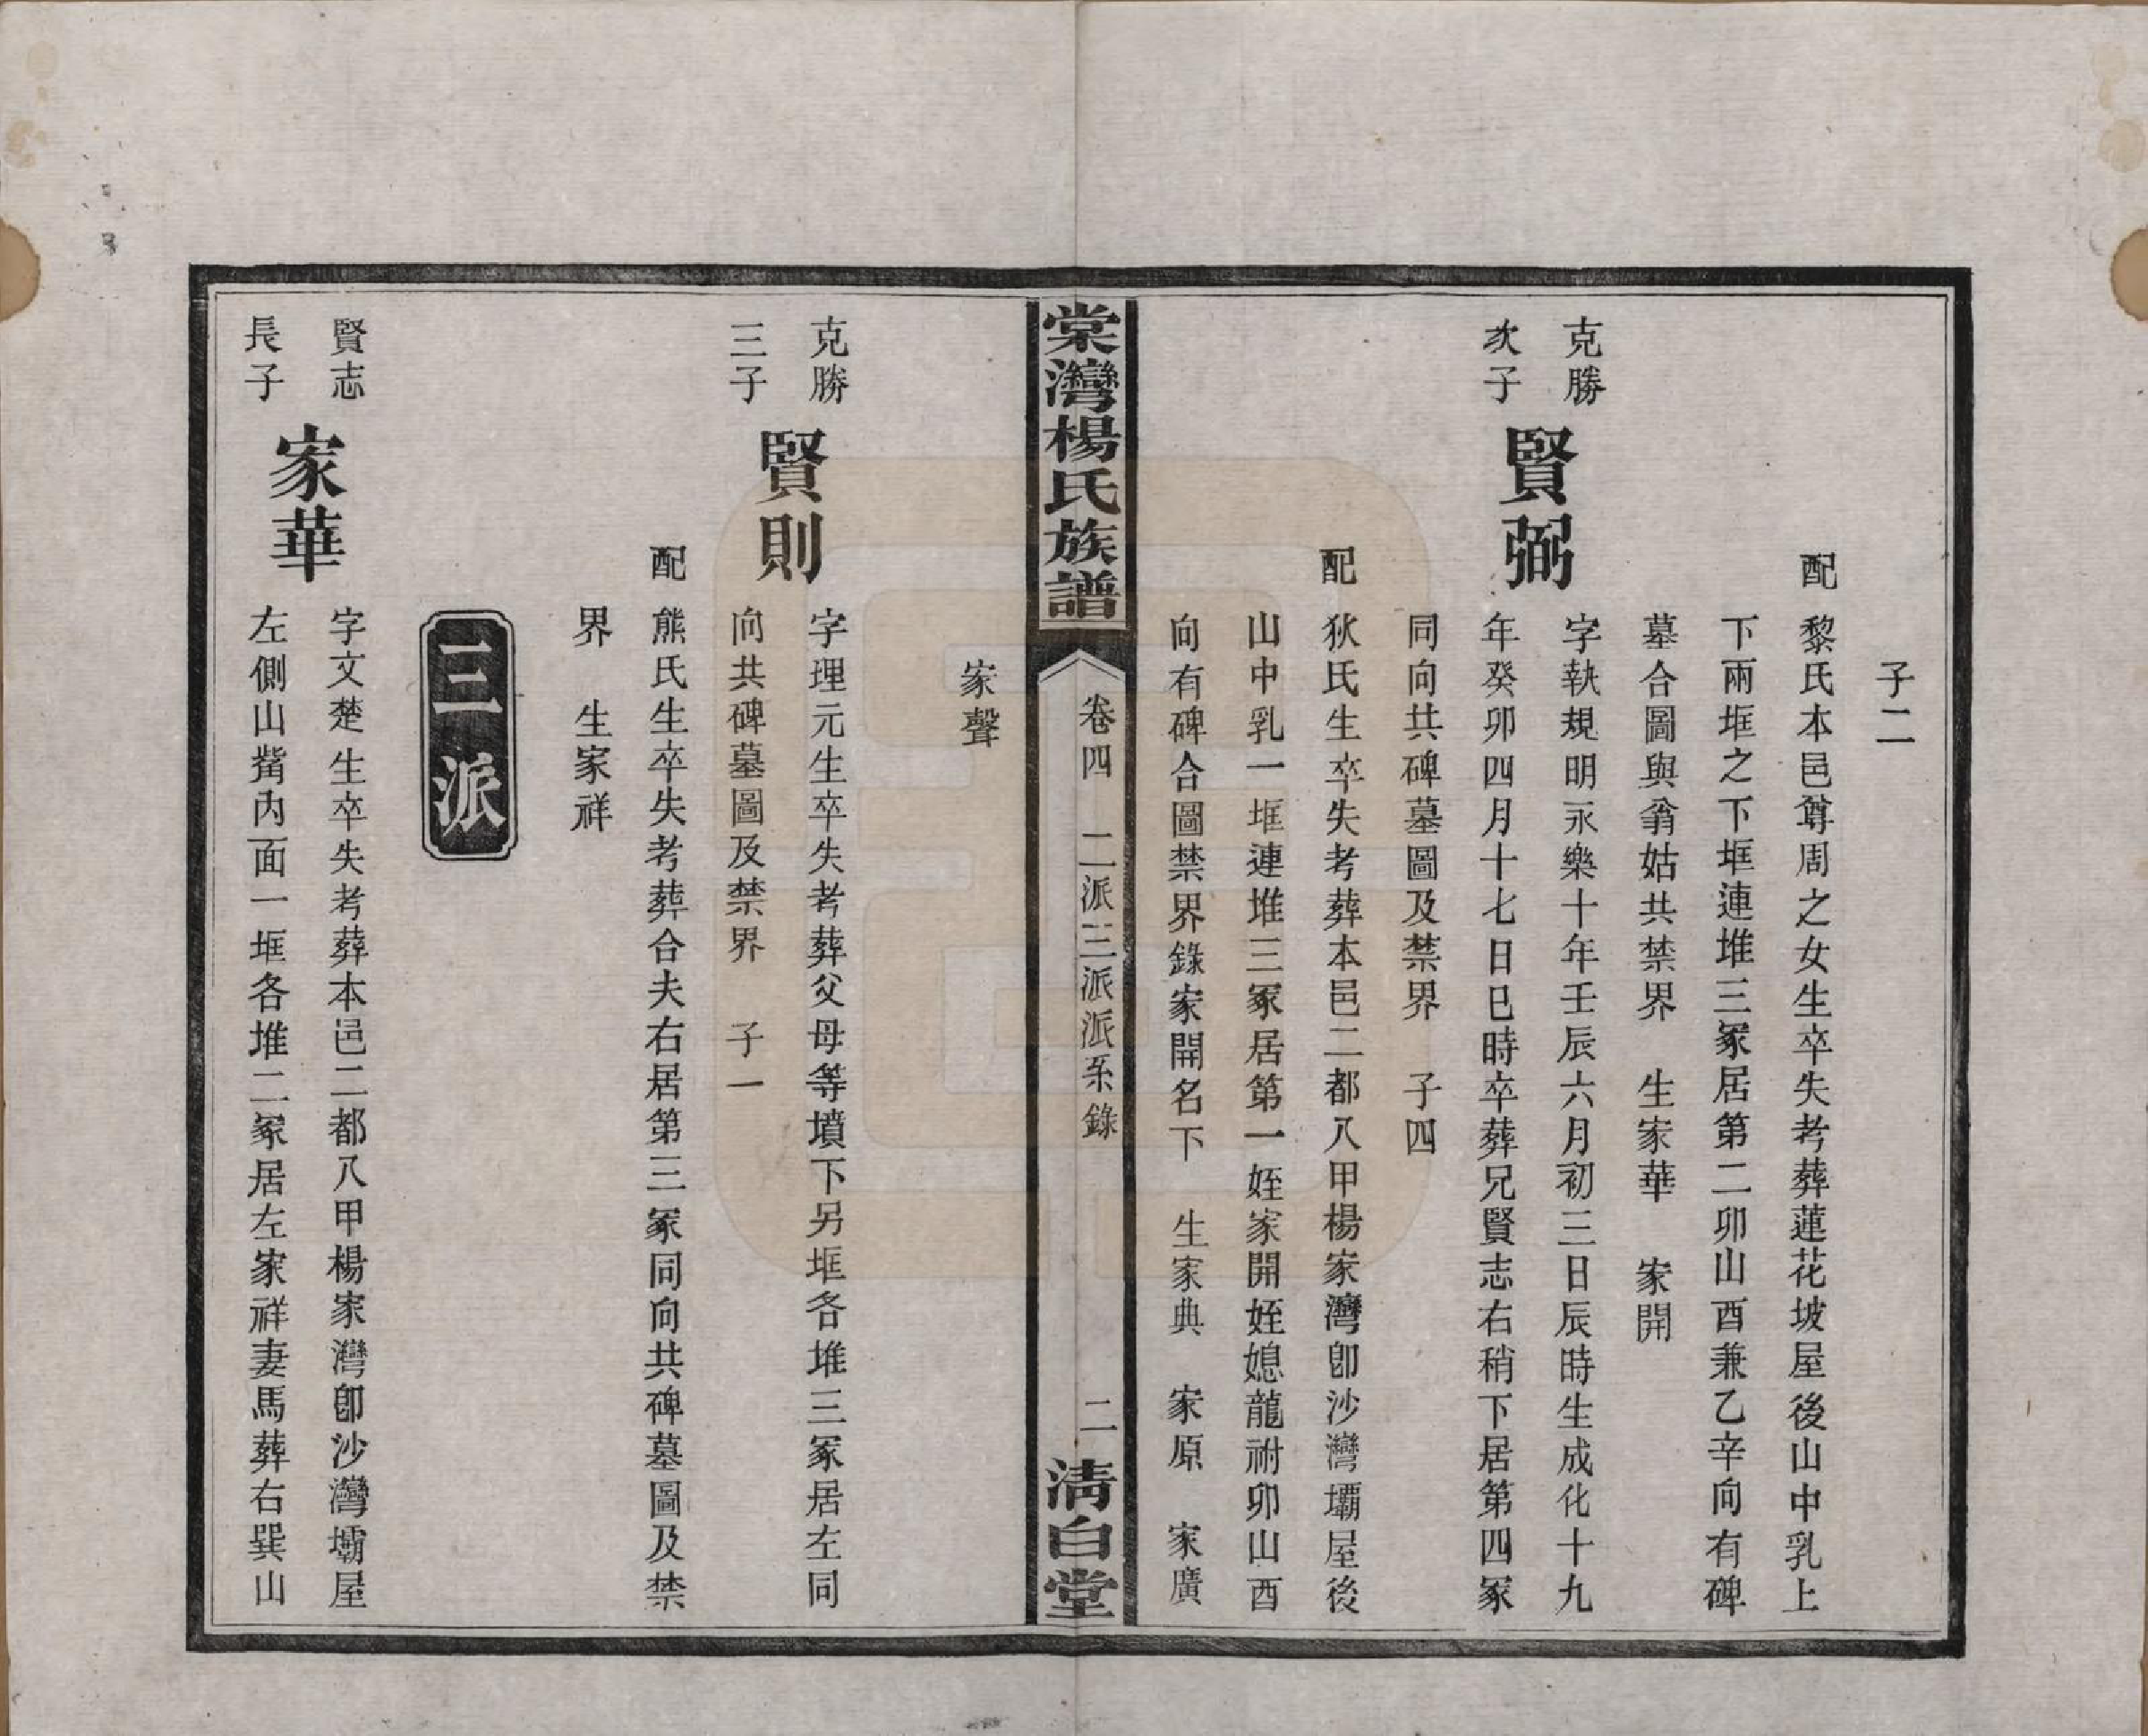 子二
配 黎氏本邑尊周之女生卒失考葬蓮花坡屋後山中乳上
下兩堆之下堆連堆三冢居第二卯山酉兼乙辛向有碑
墓合圖與翁姑共禁界 生家華 家開
克勝
次子
賢弼
字執規明永樂十年壬辰六月初三日辰時生成化十九
年癸卯四月十七日巳時卒葬兄賢志右稍下居第四冢
同向共碑墓圖及禁界 子四
配 狄氏生卒失考葬本邑二都八甲楊家灣卽沙灣壩屋後
山中乳一堆連堆三冢居第一姪家開姪媳龍祔卯山酉
向有碑合圖禁界錄家開名下 生家典 家原 家廣
棠灣楊氏族譜 卷四 二派三派派系錄 二 淸白堂
家聲
克勝
三子
賢則
字理元生卒失考葬父母等墳下另堆各堆三冢居左同
向共碑墓圖及禁界 子一
配 熊氏生卒失考葬合夫右居第三冢同向共碑墓圖及禁
界 生家祥
三派
賢志
長子
家華
字文楚生卒失考葬本邑二都八甲楊家灣卽沙灣壩屋
左側山觜內面一堆各堆二冢居左家祥妻馬葬右巽山